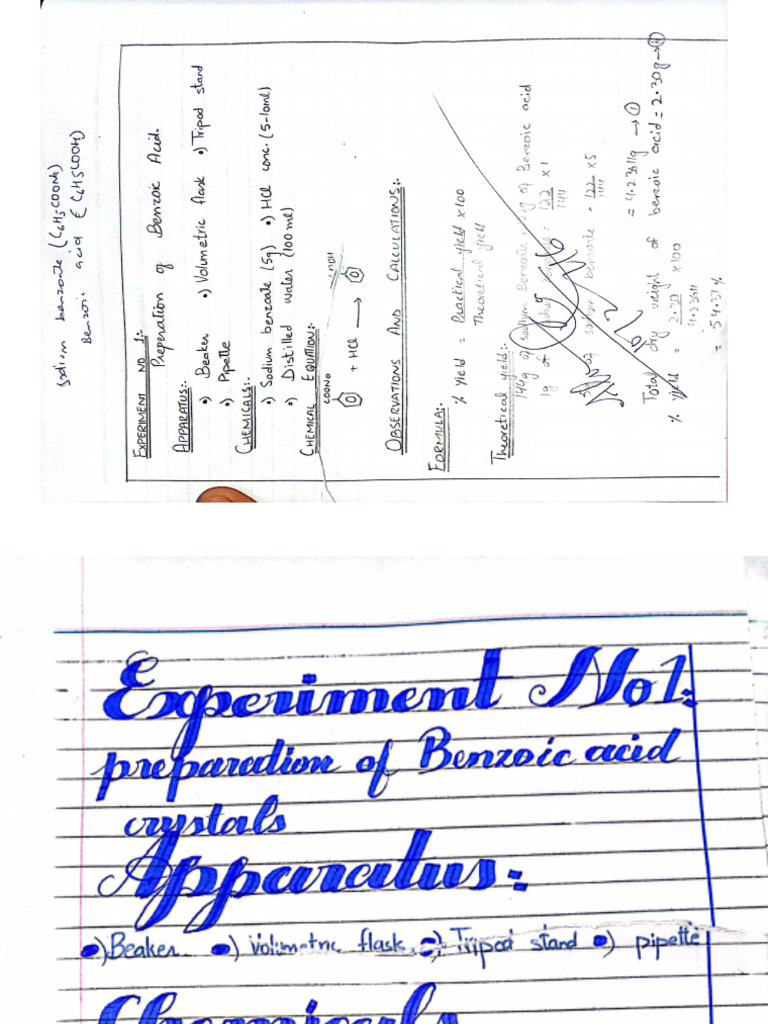 sodium benzoate (C6H5COONa)
Benzoic acid (C6H5COOH)
EXPERIMENT NO 1:-
Preperation of Benzoic Acid.
APPARATUS:-
•) Beaker •) Volumetric flask •) Tripod stand
•) Pipette
CHEMICALS:-
•) Sodium benzoate (5g) •) HCl conc. (5-10ml)
•) Distilled water (100 ml)
CHEMICAL EQUTION:-
COONa
+ HCl →
OBSERVATIONS AND CALCULATIONS:-
FORMULA:-
% yield = Practical yield x100
Theoretical yield
Theoretical yield:-
144g of sodium Benzoate of Benzoic acid
1g of = 122 x 1
144
of sodium benzoate = 122 x5
144
= 4.2361g → ①
Total dry weight of benzoic acid = 2.30g → ②
% yield = 2.30 x100
4.2361
= 54.37%
Experiment No 1:
preparation of Benzoic acid
crystals
Apparatus:-
•) Beaker •) volumetric flask •) Tripod stand •) pipette
Chemicals